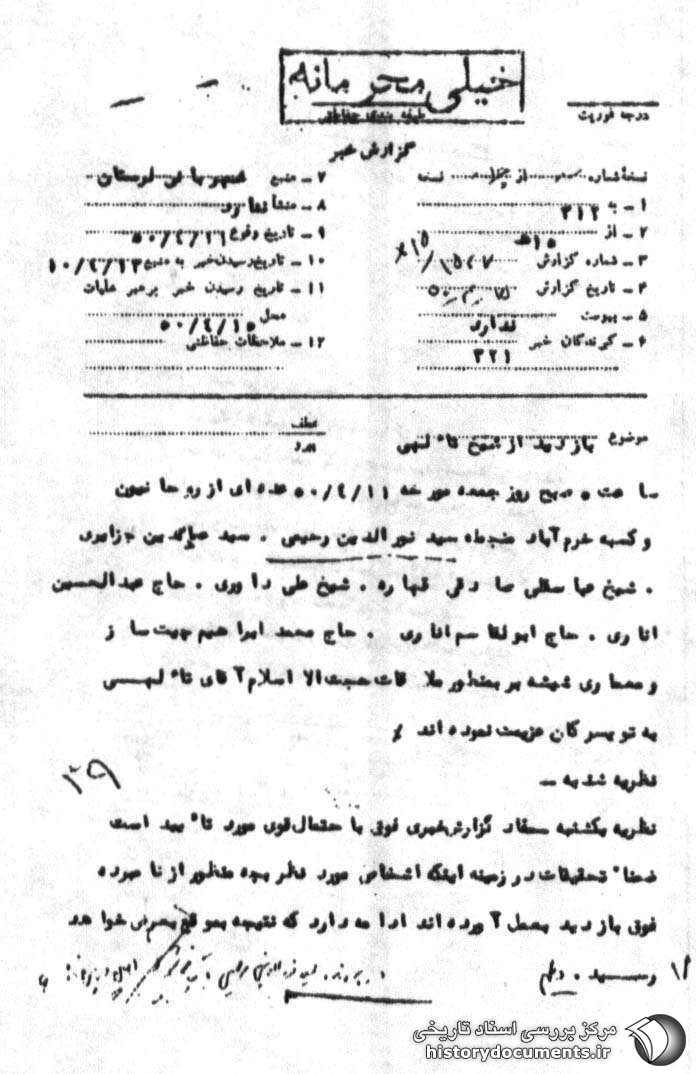 خیلی محرمانه
طبقه بندی حفاظتی
درجه فوریت
گزارش خبر
نسخه شماره از چهار نسخه
۱ ـ به ۳۱۲
۲ ـ از ۱۵ه‍
۳ ـ شماره گزارش
۴ ـ تاریخ گزارش
۵ ـ پیوست ندارد
۶ ـ گیرندگان خبر ۳۲۱
۷ ـ منبع شهربانی لرستان
۸ ـ منشأ ندارد
۹ ـ تاریخ وقوع
۱۰ ـ تاریخ رسیدن خبر به منبع
۱۱ ـ تاریخ رسیدن خبر برهبر عملیات
محل ۵۰/۴/۱۵
۱۲ ـ ملاحظات حفاظتی
موضوع بازدید از شیخ تاء لهی
عطف
پیرو
ساعت ۵ صبح روز جمعه مورخه ۵۰/۴/۱۱ عده ای از روحانیون
و کسبه خرم آباد منجمله سید نورالدین رحیمی . سید جزایری
. شیخ عباسعلی صادقی قهاره . شیخ علی داوری . حاج عبدالحسین
اناری . حاج ابولقاسم اناری . حاج محمد ابراهیم چیت ساز
و معماری شیشه بر بمنظور ملاقات حجت الاسلام آقای تاء لهی
به تویسرکان عزیمت نموده اند
نظریه شنبه ـ
۳۹
نظریه یکشنبه مفاد گزارش خبری فوق با حتمال قوی مورد تاء یید است
ضمناً تحقیقات در زمینه اینکه اشخاص مورد نظر بچه منظور از نامبرده
فوق بازدید بعمل آورده اند ادامه دارد که نتیجه بموقع بعرض خواهد
رسید .
مرکز بررسی اسناد تاریخی
historydocuments.ir